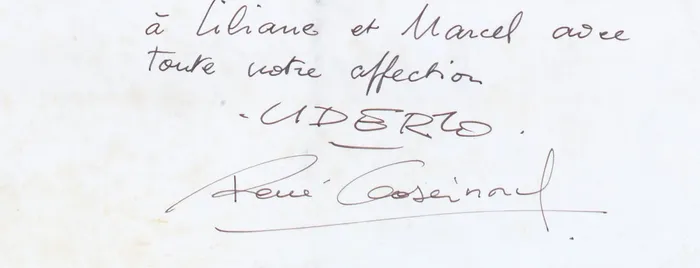 à Liliane et Marcel avec
toute notre affection
. UDERZO .
René Goscinny